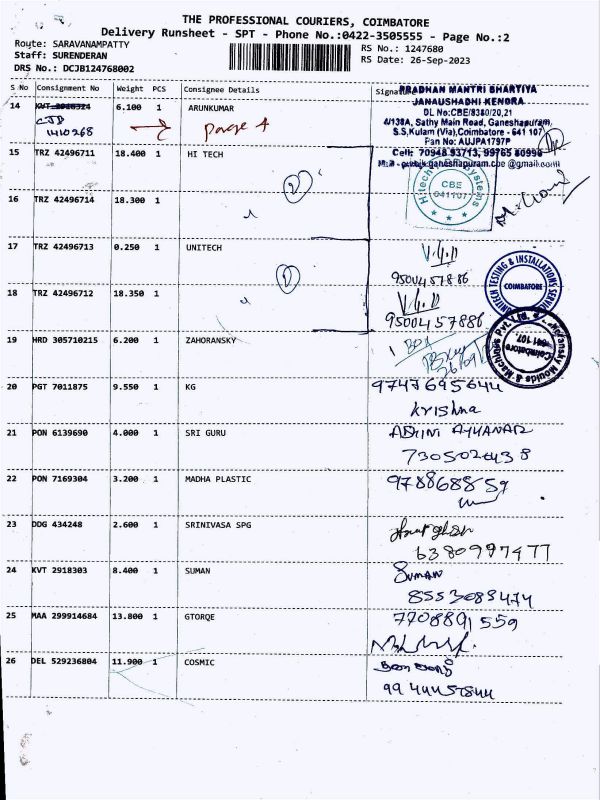 THE PROFESSIONAL COURIERS, COIMBATORE
Delivery Runsheet - SPT - Phone No.:0422-3505555 - Page No.:2
Route: SARAVANAMPATTY
Staff: SURENDERAN
DRS No.: DCJB124768002
RS No.: 1247680
RS Date: 26-Sep-2023
S No Consignment No Weight PCS Consignee Details Signat
PRADHAN MANTRI BHARTIYA
JANAUSHADHI KENDRA
DL No:CBE/8380/20,21
4/138A, Sathy Main Road, Ganeshapuram,
S.S,Kulam (Via),Coimbatore - 641 107
Pan No: AUJPA1797P
Cell: 70948 93713, 99765 80996
ganeshapuram.cbe @gmail.com
14 6.100 1 ARUNKUMAR
CJB
1410268
Page 4
15 TRZ 42496711 18.400 1 HI TECH
CBE
641107
16 TRZ 42496714 18.300 1
17 TRZ 42496713 0.250 1 UNITECH
9500457886
UNITECH TESTING & INSTALLATIONS SERV
COIMBATORE
18 TRZ 42496712 18.350 1
9500457886
19 HRD 305710215 6.200 1 ZAHORANSKY
1 Box
Zahoransky Moulds & Machines Pvt. Ltd.
Coimbatore
641 107
20 PGT 7011875 9.550 1 KG
9747695644
Krishna
21 PON 6139690 4.000 1 SRI GURU
7305020438
22 PON 7169304 3.200 1 MADHA PLASTIC
9788688859
23 DDG 434248 2.600 1 SRINIVASA SPG
6380997477
24 KVT 2918303 8.400 1 SUMAN
Suman
8553083474
25 MAA 299914684 13.800 1 GTORQE
7708891559
26 DEL 529236804 11.900 1 COSMIC
9944457844